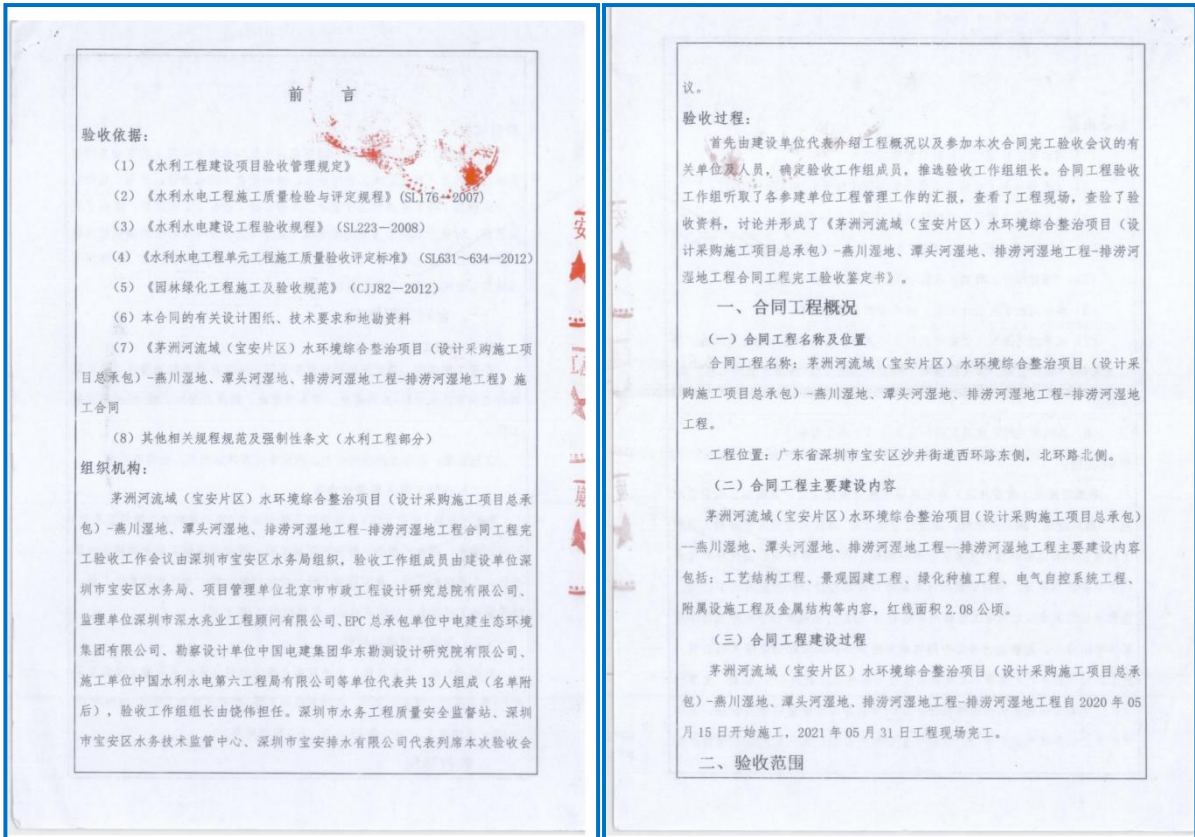 前 言
验收依据：
（1）《水利工程建设项目验收管理规定》
（2）《水利水电工程施工质量检验与评定规程》(SL176—2007)
（3）《水利水电建设工程验收规程》（SL223－2008）
（4）《水利水电工程单元工程施工质量验收评定标准》（SL631～634—2012）
（5）《园林绿化工程施工及验收规范》（CJJ82－2012）
（6）本合同的有关设计图纸、技术要求和地勘资料
（7）《茅洲河流域（宝安片区）水环境综合整治项目（设计采购施工项
目总承包）-燕川湿地、潭头河湿地、排涝河湿地工程-排涝河湿地工程》施
工合同
（8）其他相关规程规范及强制性条文（水利工程部分）
组织机构：
茅洲河流域（宝安片区）水环境综合整治项目（设计采购施工项目总承
包）-燕川湿地、潭头河湿地、排涝河湿地工程-排涝河湿地工程合同工程完
工验收工作会议由深圳市宝安区水务局组织，验收工作组成员由建设单位深
圳市宝安区水务局、项目管理单位北京市市政工程设计研究总院有限公司、
监理单位深圳市深水兆业工程顾问有限公司、EPC 总承包单位中电建生态环境
集团有限公司、勘察设计单位中国电建集团华东勘测设计研究院有限公司、
施工单位中国水利水电第六工程局有限公司等单位代表共 13 人组成（名单附
后），验收工作组组长由饶伟担任。深圳市水务工程质量安全监督站、深圳
市宝安区水务技术监管中心、深圳市宝安排水有限公司代表列席本次验收会
安
议。
验收过程：
首先由建设单位代表介绍工程概况以及参加本次合同完工验收会议的有
关单位及人员，确定验收工作组成员，推选验收工作组组长。合同工程验收
工作组听取了各参建单位工程管理工作的汇报，查看了工程现场，查验了验
收资料，讨论并形成了《茅洲河流域（宝安片区）水环境综合整治项目（设
计采购施工项目总承包）-燕川湿地、潭头河湿地、排涝河湿地工程-排涝河
湿地工程合同工程完工验收鉴定书》。
一、合同工程概况
（一）合同工程名称及位置
合同工程名称：茅洲河流域（宝安片区）水环境综合整治项目（设计采
购施工项目总承包）-燕川湿地、潭头河湿地、排涝河湿地工程-排涝河湿地
工程。
工程位置：广东省深圳市宝安区沙井街道西环路东侧，北环路北侧。
（二）合同工程主要建设内容
茅洲河流域（宝安片区）水环境综合整治项目（设计采购施工项目总承包）
--燕川湿地、潭头河湿地、排涝河湿地工程--排涝河湿地工程主要建设内容
包括：工艺结构工程、景观园建工程、绿化种植工程、电气自控系统工程、
附属设施工程及金属结构等内容，红线面积 2.08 公顷。
（三）合同工程建设过程
茅洲河流域（宝安片区）水环境综合整治项目（设计采购施工项目总承
包）-燕川湿地、潭头河湿地、排涝河湿地工程-排涝河湿地工程自 2020 年 05
月 15 日开始施工，2021 年 05 月 31 日工程现场完工。
二、验收范围